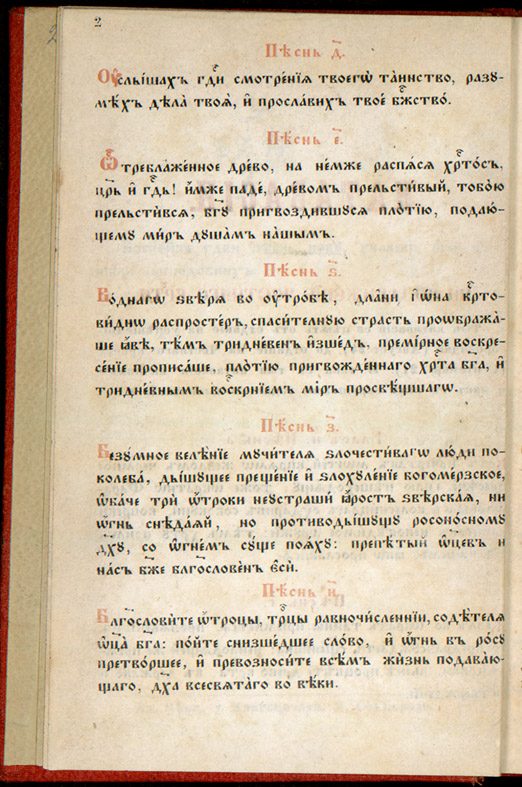 2
2
Пѣснь д҃.
Оу҆слы́шахъ гдⷭ҇и смотре́нїѧ твоегѡ̀ та́инство, разꙋ-
мѣ́хъ дѣла̀ твоѧ̑, и҆ просла́вихъ твоѐ бж҃ество̀.
Пѣснь є҃.
Ѽ треблаже́нное дре́во, на не́мже распѧ́сѧ хрⷭ҇то́съ,
цр҃ь и҆ гдⷭ҇ь! и҆́мже падѐ, дре́вомъ прельсти́вый, тобо́ю
прельсти́всѧ, бг҃ꙋ пригвозди́вшꙋсѧ пло́тїю, подаю́-
щемꙋ ми́ръ дꙋша́мъ на́шымъ.
Пѣснь ѕ҃.
Во́днагѡ ѕвѣ́рѧ во оу҆тро́бѣ, дла̑ни і҆ѡ́на крⷭ҇то-
ви́днѡ распросте́ръ, спаси́телнꙋю стра́сть проѡбража́-
ше ꙗ҆́вѣ, тѣ́мъ тридне́венъ и҆зше́дъ, премі́рное воскре-
се́нїе прописа́ше, пло́тїю пригвожде́ннагѡ хрⷭ҇та̀ бг҃а, и҆
тридне́внымъ воскрⷭ҇нїемъ мі́ръ просвѣ́щшагѡ.
Пѣснь з҃.
Безꙋ́мное велѣ́нїе мꙋчи́телѧ ѕлочести́вагѡ лю́ди по-
колеба̀, ды́шꙋщее преще́нїе и҆ ѕлохꙋле́нїе богоме́рзское,
ѻ҆ба́че трѝ ѻ҆́троки не ᲂустрашѝ ꙗ҆́рость ѕвѣ́рскаѧ, ни
ѻ҆́гнь снѣда́ѧй, но противоды́шꙋщꙋ росоно́сномꙋ
дх҃ꙋ, со ѻ҆гне́мъ сꙋ́ще поѧ́хꙋ: препѣ́тый ѻ҆тцє́въ и
на́съ бж҃е благослове́нъ є҆сѝ.
Пѣснь и҃.
Благослови́те ѻ҆́троцы, трⷪ҇цы равночи́сленнїи, содѣ́телѧ
ѻ҆ц҃а̀ бг҃а: по́йте снизше́дшее сло́во, и҆ ѻ҆́гнь въ ро́сꙋ
претво́ршее, и҆ превозноси́те всѣ́мъ жи́знь подаваю́-
щаго, дх҃а всесвѧта́го во вѣ́ки.